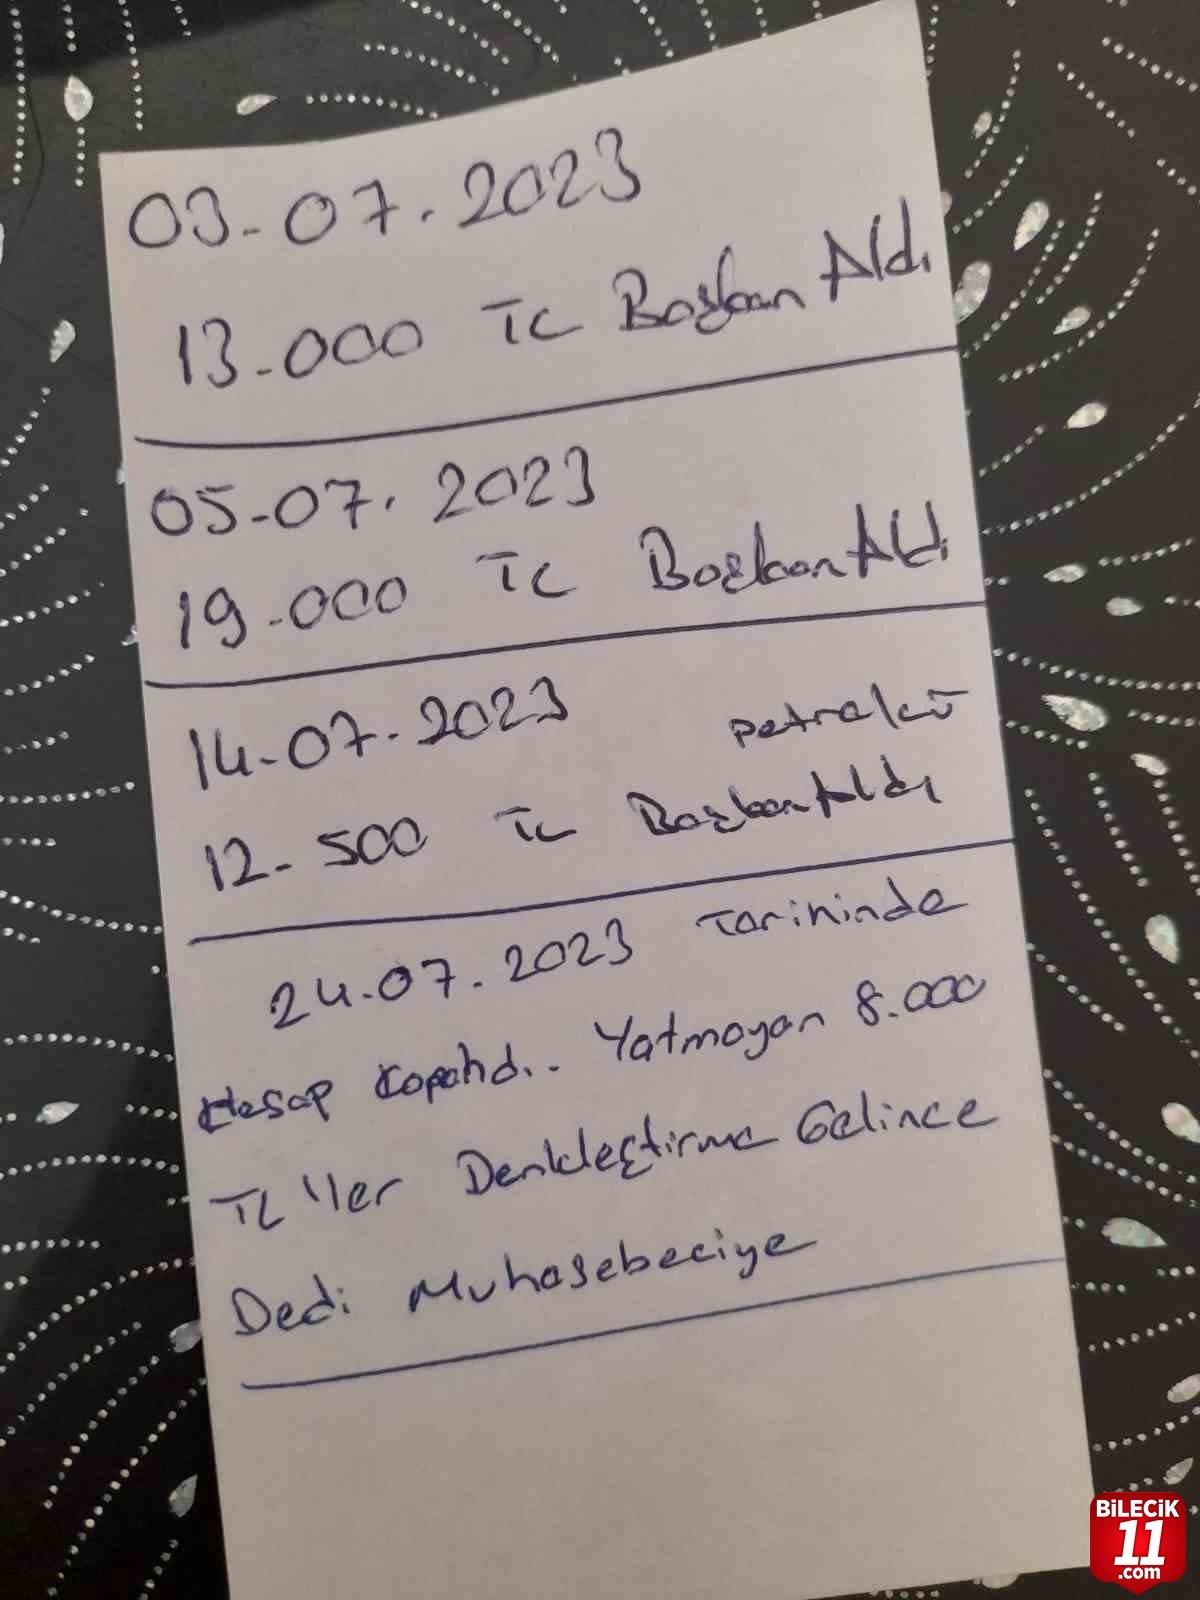 03-07.2023
13.000 TL Başkan Aldı
05-07.2023
19.000 TL Başkan Aldı
14-07.2023 petrolcü
12-500 TL Başkan Aldı
24.07.2023 Tarihinde
Hesap Kapandı.. Yatmayan 8.000
TL'ler Denkleştirme Gelince
Dedi Muhasebeciye
BİLECİK
11
.com